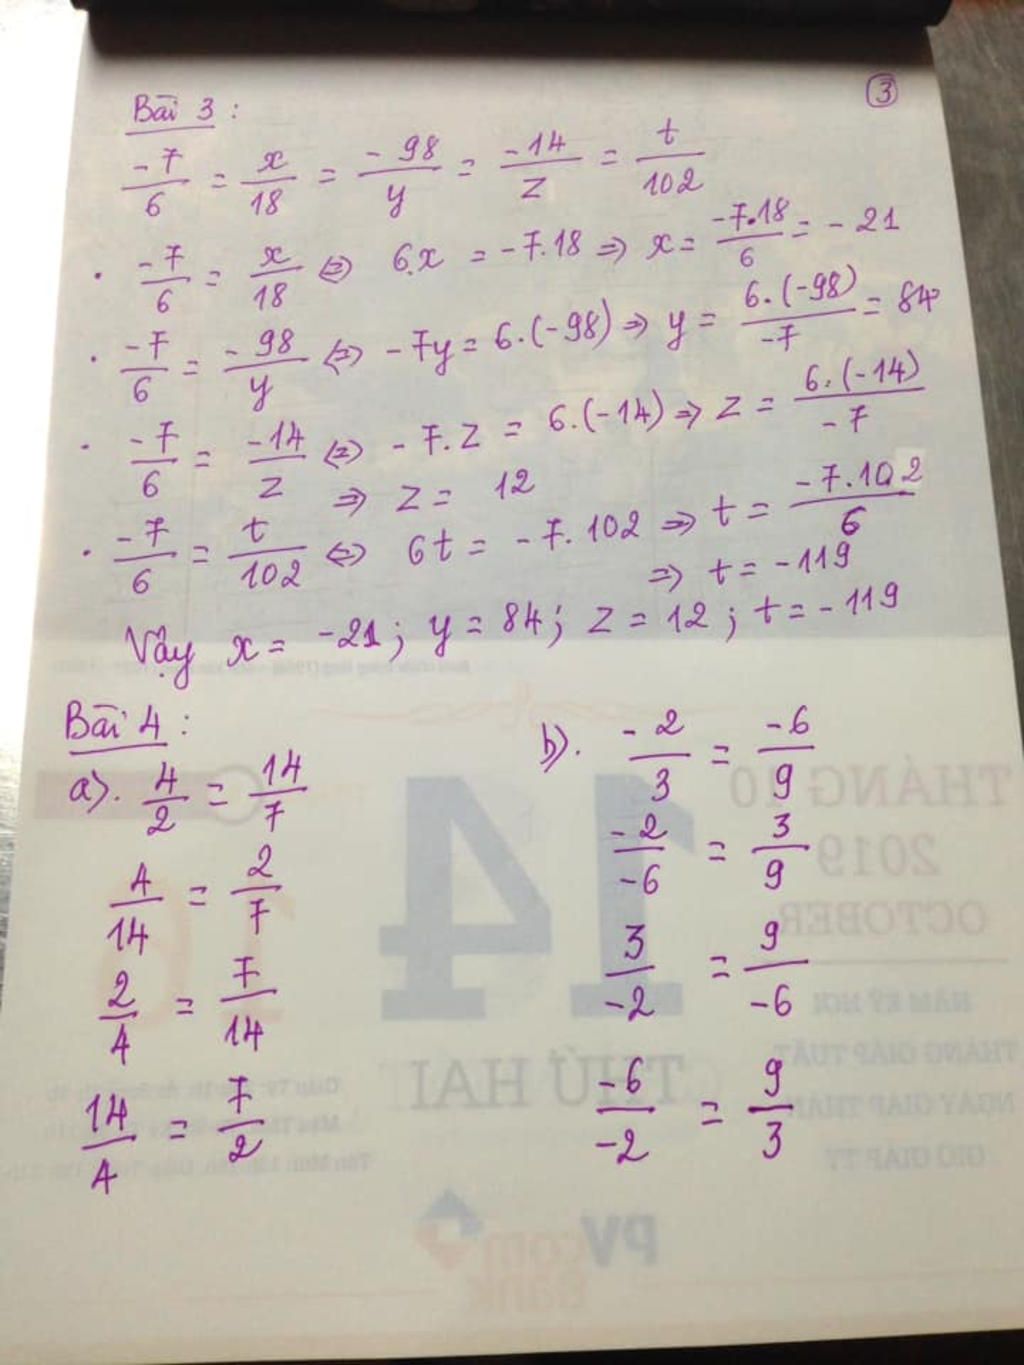 ③
Bài 3 :
-7/6 = x/18 = -98/y = -14/z = t/102
· -7/6 = x/18 ⇔ 6.x = -7.18 ⇒ x = -7.18/6 = -21
· -7/6 = -98/y ⇔ -7y = 6.(-98) ⇒ y = 6.(-98)/-7 = 84
· -7/6 = -14/z ⇔ -7.z = 6.(-14) ⇒ z = 6.(-14)/-7
⇒ z = 12
· -7/6 = t/102 ⇔ 6t = -7.102 ⇒ t = -7.102/6
⇒ t = -119
Vậy x = -21; y = 84; z = 12; t = -119
Bài 4 :
a). 4/2 = 14/7
4/14 = 2/7
2/4 = 7/14
14/4 = 7/2
b). -2/3 = -6/9
-2/-6 = 3/9
3/-2 = 9/-6
-6/-2 = 9/3
THÁNG 10
2019
OCTOBER
14
THỨ HAI
NĂM KỶ HỢI
THÁNG GIÁP TUẤT
GIỜ GIÁP TÝ
PVcom
Bank